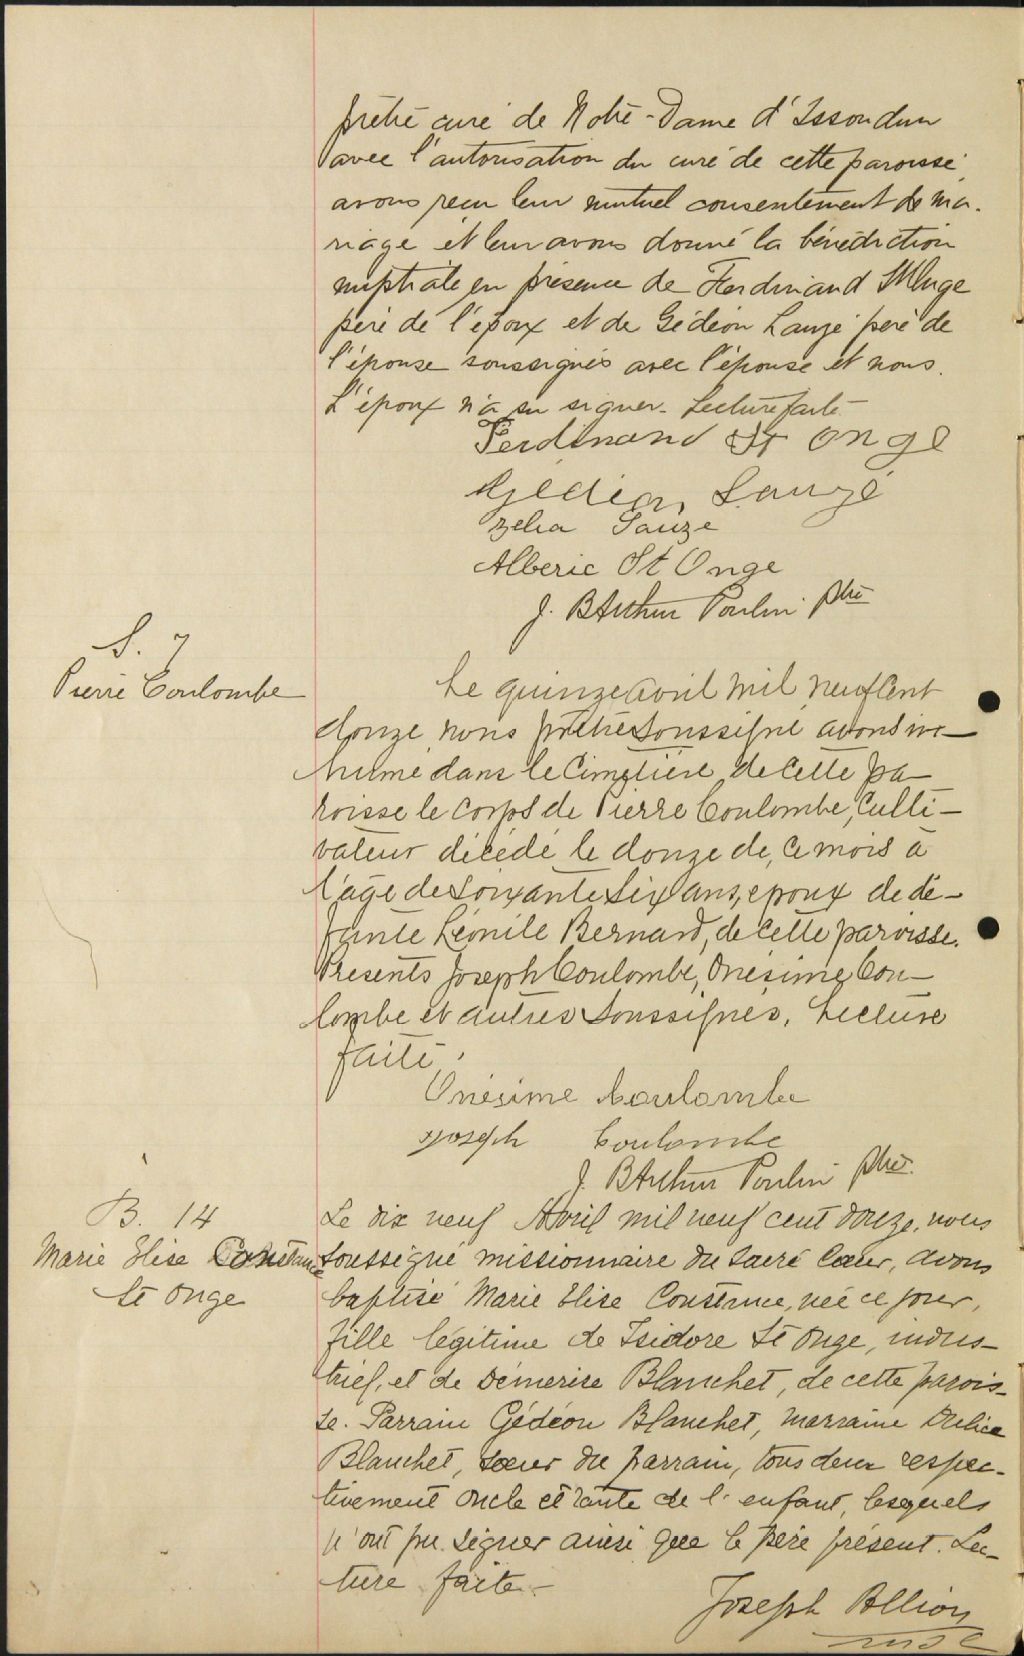 prêtre curé de Notre-Dame d'Issoudun
avec l'autorisation du curé de cette paroisse,
avons reçu leur mutuel consentement de ma-
riage et leur avons donné la bénédiction
nuptiale en présence de Ferdinand St Onge
père de l'époux et de Gédéon Lauzé père de
l'épouse soussignés avec l'épouse et nous.
L'époux n'a su signer. Lecture faite
Ferdinand St Onge
Gédéon Lauzé
Zelia Lauzé
Alberic St Onge
J. B Arthur Poulin ptre
S. 7
Pierre Coulombe
Le quinze avril mil neuf cent
douze, nous prêtre soussigné avons in-
humé dans le cimetière de cette pa-
roisse le corps de Pierre Coulombe, culti-
vateur décédé le douze de ce mois à
l'âge de soixante six ans, époux de dé-
funte Léonile Bernard, de cette paroisse.
Présents Joseph Coulombe, Onésime Cou-
lombe et autres soussignés. Lecture
faite.
Onésime Coulombe
Joseph Coulombe
J. B Arthur Poulin ptre.
B. 14
Marie Elise Constance
St Onge
Le dix neuf Avril mil neuf cent douze, nous
soussigné missionnaire du Sacré Cœur, avons
baptisé Marie Elise Constance, née ce jour,
fille légitime de Isidore St Onge, indus-
triel, et de Démerise Blanchet, de cette parois-
se. Parrain Gédéon Blanchet, marraine
Blanchet, sœur du parrain, tous deux respec-
tivement oncle et tante de l'enfant, lesquels
n'ont pu signer ainsi que le père présent. Lec-
ture faite.-
Joseph Allion
msc